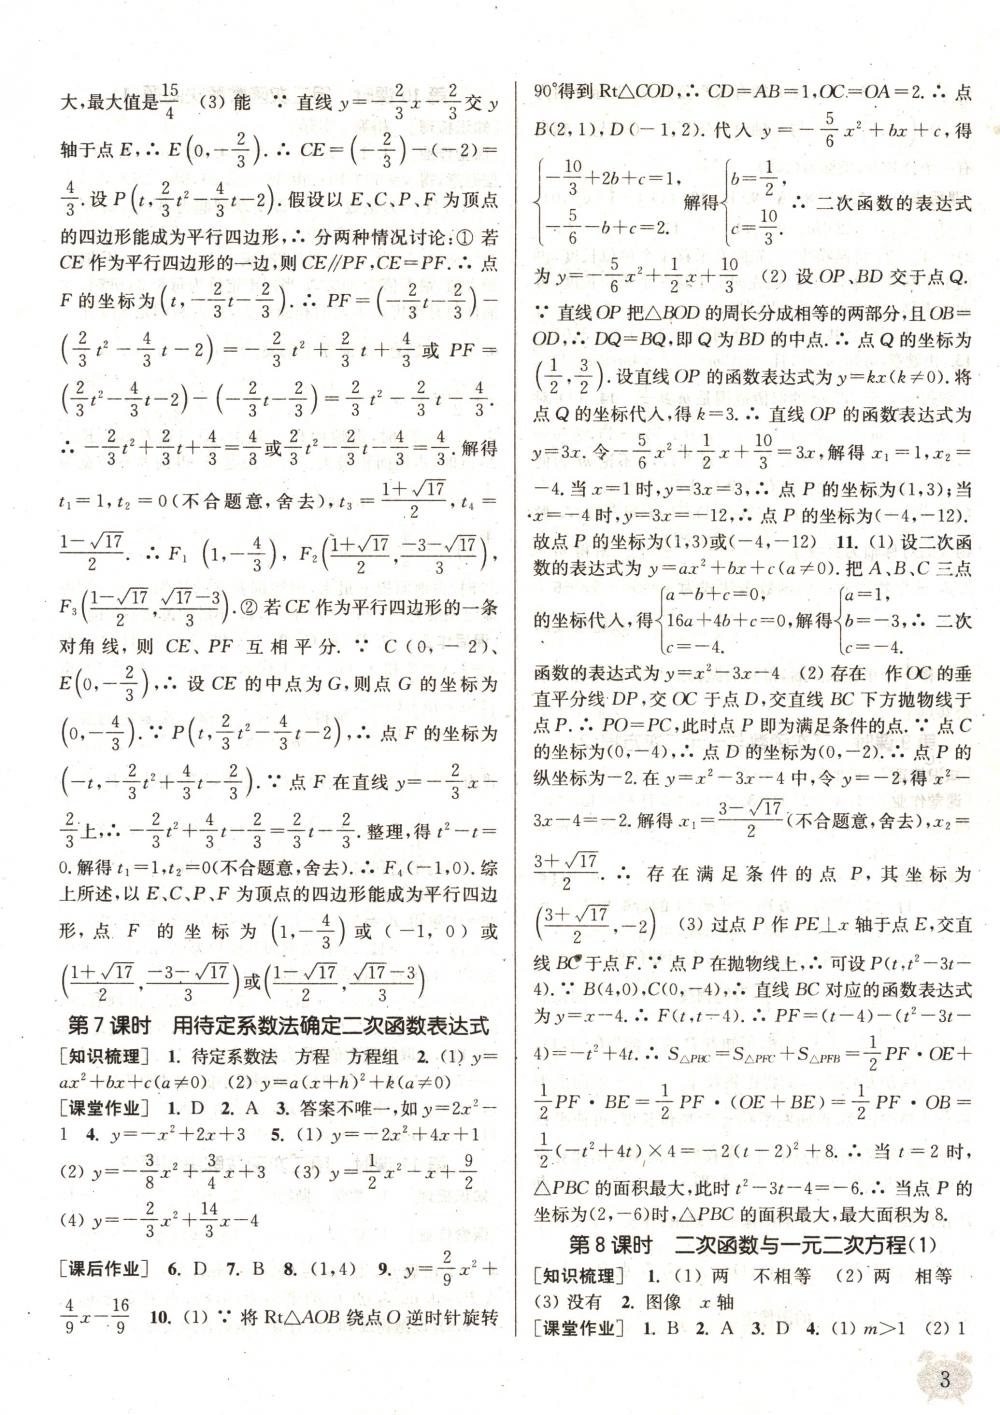 大,最大值是15/4 (3) 能 ∵ 直线 y=-2/3x-2/3交 y
轴于点 E,∴ E(0,-2/3).∴ CE=(-2/3)-(-2)=
4/3.设 P(t,2/3t²-4/3t-2).假设以 E、C、P、F 为顶点
的四边形能成为平行四边形,∴ 分两种情况讨论:① 若
CE 作为平行四边形的一边,则 CE∥PF,CE=PF.∴ 点
F 的坐标为(t,-2/3t-2/3).∴ PF=(-2/3t-2/3)-
(2/3t²-4/3t-2)=-2/3t²+2/3t+4/3或 PF=
(2/3t²-4/3t-2)-(-2/3t-2/3)=2/3t²-2/3t-4/3.
∴ -2/3t²+2/3t+4/3=4/3或2/3t²-2/3t-4/3=4/3.解得
t₁=1,t₂=0(不合题意,舍去),t₃=(1+√17)/2,t₄=
(1-√17)/2.∴ F₁(1,-4/3),F₂((1+√17)/2,(-3-√17)/3),
F₃((1-√17)/2,(√17-3)/3).② 若 CE 作为平行四边形的一条
对角线,则 CE、PF 互相平分.∵ C(0,-2)、
E(0,-2/3),∴ 设 CE 的中点为 G,则点 G 的坐标为
(0,-4/3).∵ P(t,2/3t²-4/3t-2),∴ 点 F 的坐标为
(-t,-2/3t²+4/3t-2/3).∵ 点 F 在直线 y=-2/3x-
2/3上,∴ -2/3t²+4/3t-2/3=2/3t-2/3.整理,得 t²-t=
0.解得 t₁=1,t₂=0(不合题意,舍去).∴ F₄(-1,0).综
上所述,以 E、C、P、F 为顶点的四边形能成为平行四边
形,点 F 的坐标为(1,-4/3)或(-1,0)或
((1+√17)/2,(-3-√17)/3)或((1-√17)/2,(√17-3)/3)
第 7 课时 用待定系数法确定二次函数表达式
[知识梳理] 1. 待定系数法 方程 方程组 2. (1) y=
ax²+bx+c(a≠0) (2) y=a(x+h)²+k(a≠0)
[课堂作业] 1. D 2. A 3. 答案不唯一,如 y=2x²-
1 4. y=-x²+2x+3 5. (1) y=-2x²+4x+1
(2) y=-3/8x²+3/4x+3 (3) y=1/2x²-x+9/2
(4) y=-2/3x²+14/3x-4
[课后作业] 6. D 7. B 8. (1,4) 9. y=2/9x²+
4/9x-16/9 10. (1) ∵ 将 Rt△AOB 绕点 O 逆时针旋转
90°得到 Rt△COD,∴ CD=AB=1,OC=OA=2.∴ 点
B(2,1),D(-1,2).代入 y=-5/6x²+bx+c,得
{-10/3+2b+c=1, -5/6-b+c=2. 解得{b=1/2, c=10/3. ∴ 二次函数的表达式
为 y=-5/6x²+1/2x+10/3 (2) 设 OP、BD 交于点 Q.
∵ 直线 OP 把△BOD 的周长分成相等的两部分,且 OB=
OD,∴ DQ=BQ,即 Q 为 BD 的中点.∴ 点 Q 的坐标为
(1/2,3/2).设直线 OP 的函数表达式为 y=kx(k≠0).将
点 Q 的坐标代入,得 k=3.∴ 直线 OP 的函数表达式为
y=3x.令-5/6x²+1/2x+10/3=3x,解得 x₁=1,x₂=
-4.当 x=1 时,y=3x=3,∴ 点 P 的坐标为(1,3);当
x=-4 时,y=3x=-12,∴ 点 P 的坐标为(-4,-12).
故点 P 的坐标为(1,3)或(-4,-12) 11. (1) 设二次函
数的表达式为 y=ax²+bx+c(a≠0).把 A、B、C 三点
的坐标代入,得{a-b+c=0, 16a+4b+c=0, c=-4. 解得{a=1, b=-3, c=-4. ∴ 二次
函数的表达式为 y=x²-3x-4 (2) 存在 作 OC 的垂
直平分线 DP,交 OC 于点 D,交直线 BC 下方抛物线于
点 P.∴ PO=PC,此时点 P 即为满足条件的点.∵ 点 C
的坐标为(0,-4),∴ 点 D 的坐标为(0,-2).∴ 点 P 的
纵坐标为-2.在 y=x²-3x-4 中,令 y=-2,得 x²-
3x-4=-2.解得 x₁=(3-√17)/2(不合题意,舍去),x₂=
(3+√17)/2.∴ 存在满足条件的点 P,其坐标为
((3+√17)/2,-2) (3) 过点 P 作 PE⊥x 轴于点 E,交直
线 BC 于点 F.∵ 点 P 在抛物线上,∴ 可设 P(t,t²-3t-
4).∵ B(4,0),C(0,-4),∴ 直线 BC 对应的函数表达式
为 y=x-4.∴ F(t,t-4).∴ PF=(t-4)-(t²-3t-
4)=-t²+4t.∴ S△PBC=S△PFC+S△PFB=1/2PF·OE+
1/2PF·BE=1/2PF·(OE+BE)=1/2PF·OB=
1/2(-t²+4t)×4=-2(t-2)²+8.∴ 当 t=2 时,
△PBC 的面积最大,此时 t²-3t-4=-6.∴ 当点 P 的
坐标为(2,-6)时,△PBC 的面积最大,最大面积为 8.
第 8 课时 二次函数与一元二次方程(1)
[知识梳理] 1. (1) 两 不相等 (2) 两 相等
(3) 没有 2. 图像 x 轴
[课堂作业] 1. B 2. A 3. D 4. (1) m>1 (2) 1
3